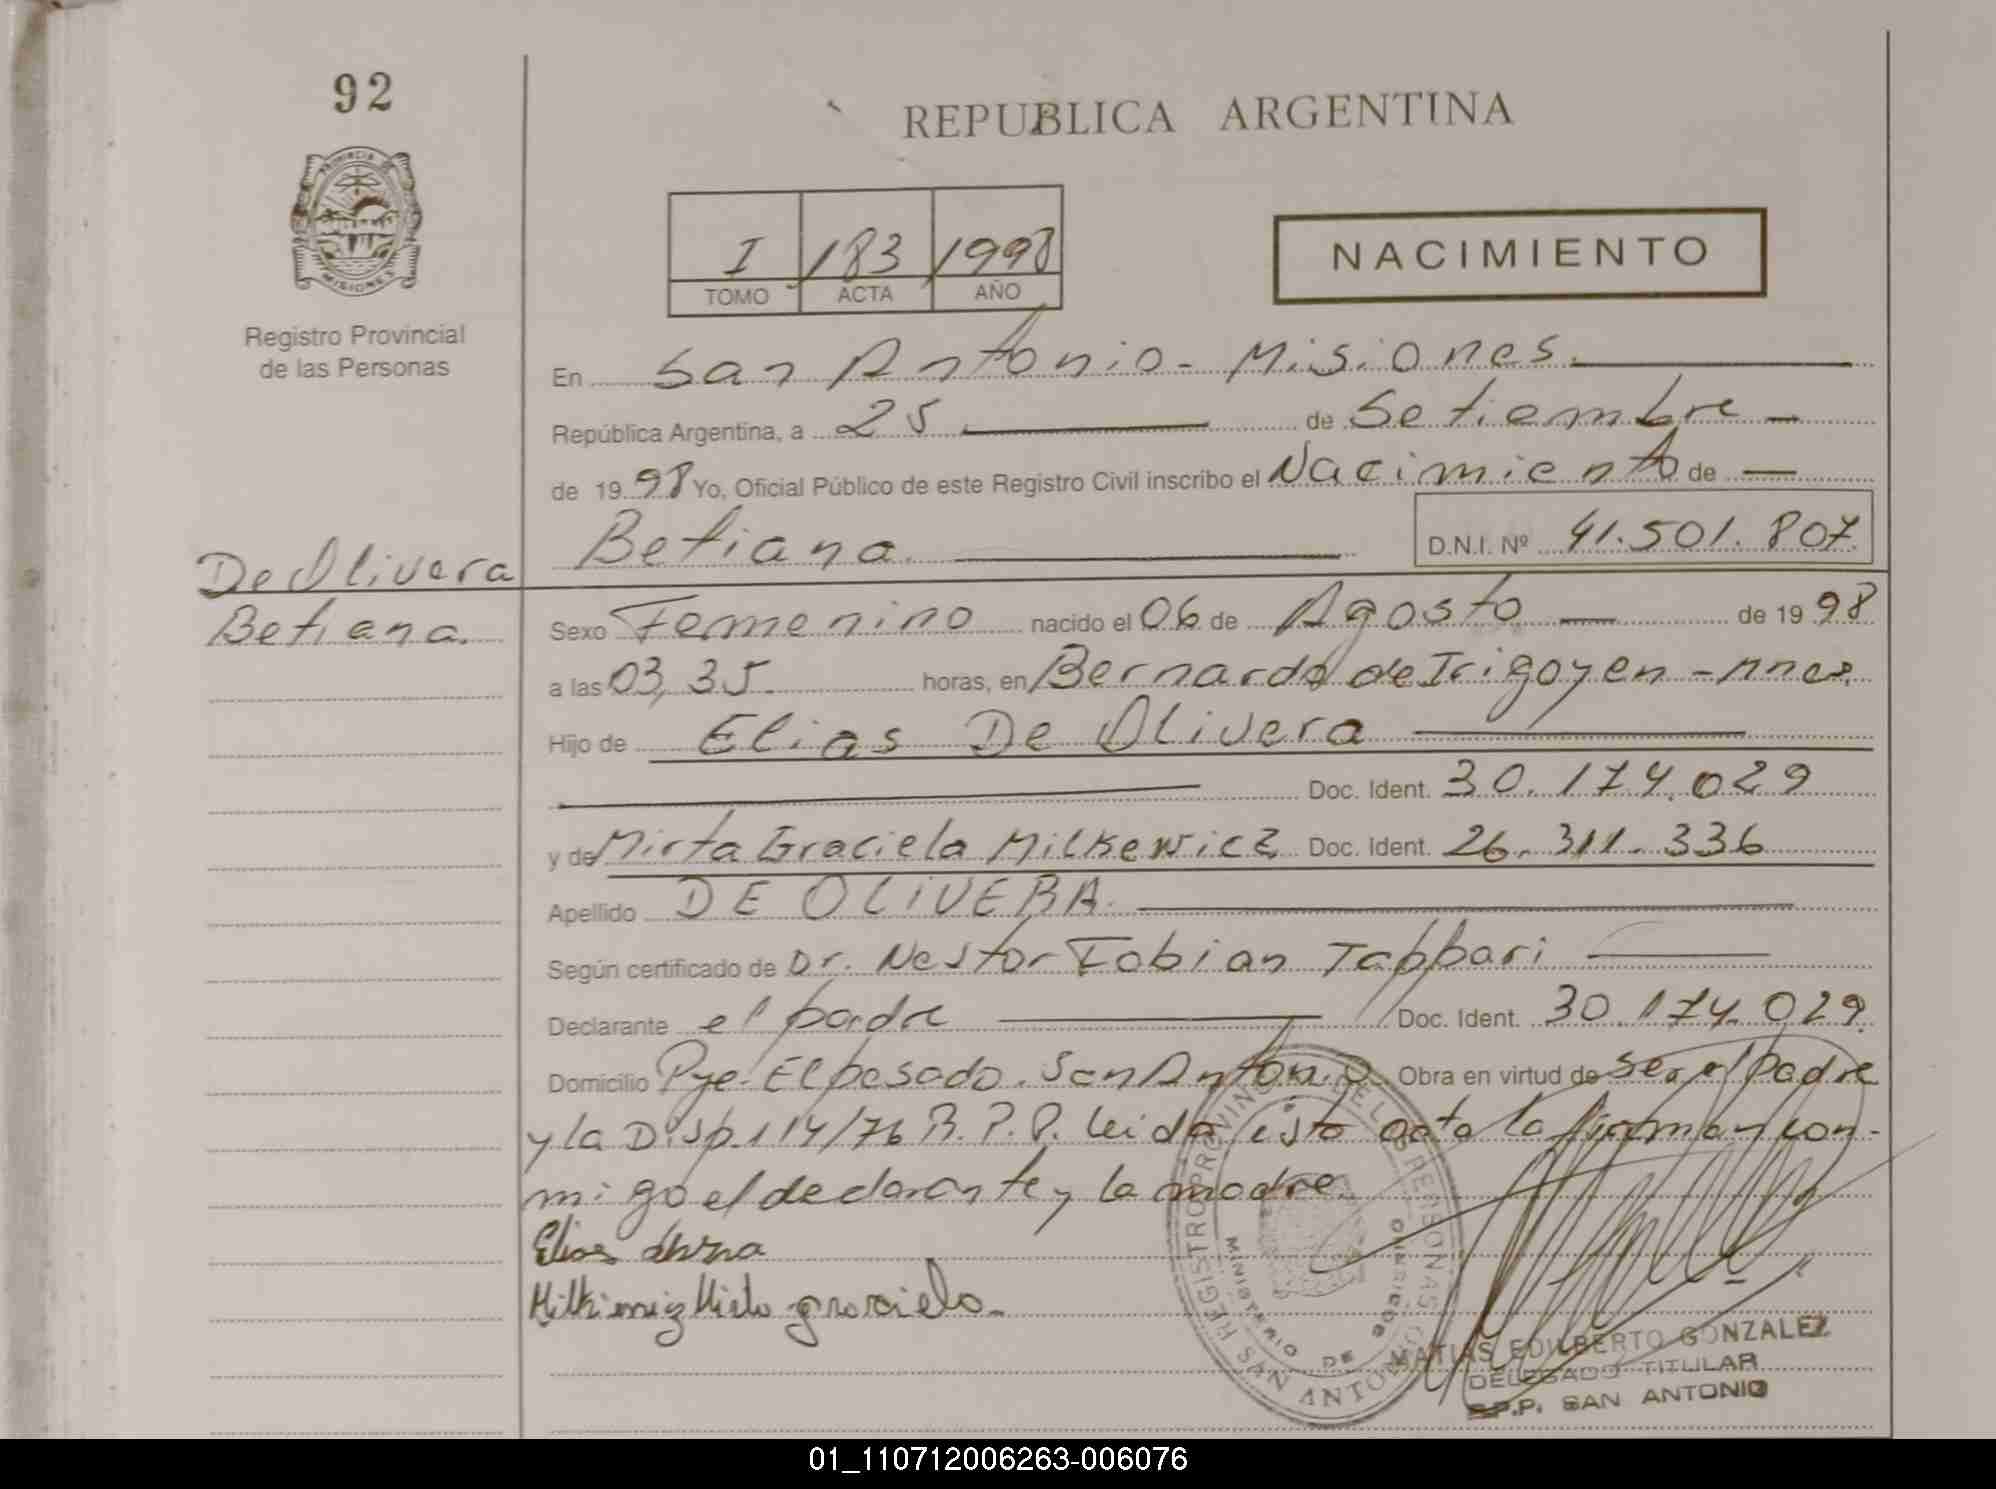 92
REPUBLICA ARGENTINA
PROVINCIA DE MISIONES
Registro Provincial
de las Personas
I 183 1998
TOMO ACTA AÑO
NACIMIENTO
En San Antonio - Misiones.
República Argentina, a 25 de Setiembre
de 1998 Yo, Oficial Público de este Registro Civil inscribo el Nacimiento de
Betiana. D.N.I. Nº 41.501.807.
De Olivera
Betiana.
Sexo Femenino nacido el 06 de Agosto de 1998
a las 03,35. horas, en Bernardo de Irigoyen - Mnes.
Hijo de Elias De Olivera
Doc. Ident. 30.174.029
y de Mirta Graciela Milkewicz Doc. Ident. 26.311.336
Apellido DE OLIVERA.
Según certificado de Dr. Nestor Fabian Tappari
Declarante el padre Doc. Ident. 30.174.029.
Domicilio Pje. El pesado. San Antonio. Obra en virtud de ser el padre
y la Disp. 114/76 R.P.P. Leida esta acta la firman con-
migo el declarante y la madre.
Elias
graciela
REGISTRO PROVINCIAL DE LAS PERSONAS
MINISTERIO DE GOBIERNO
SAN ANTONIO
MATIAS EDILBERTO GONZALEZ
DELEGADO TITULAR
R.P.P. SAN ANTONIO
01_110712006263-006076